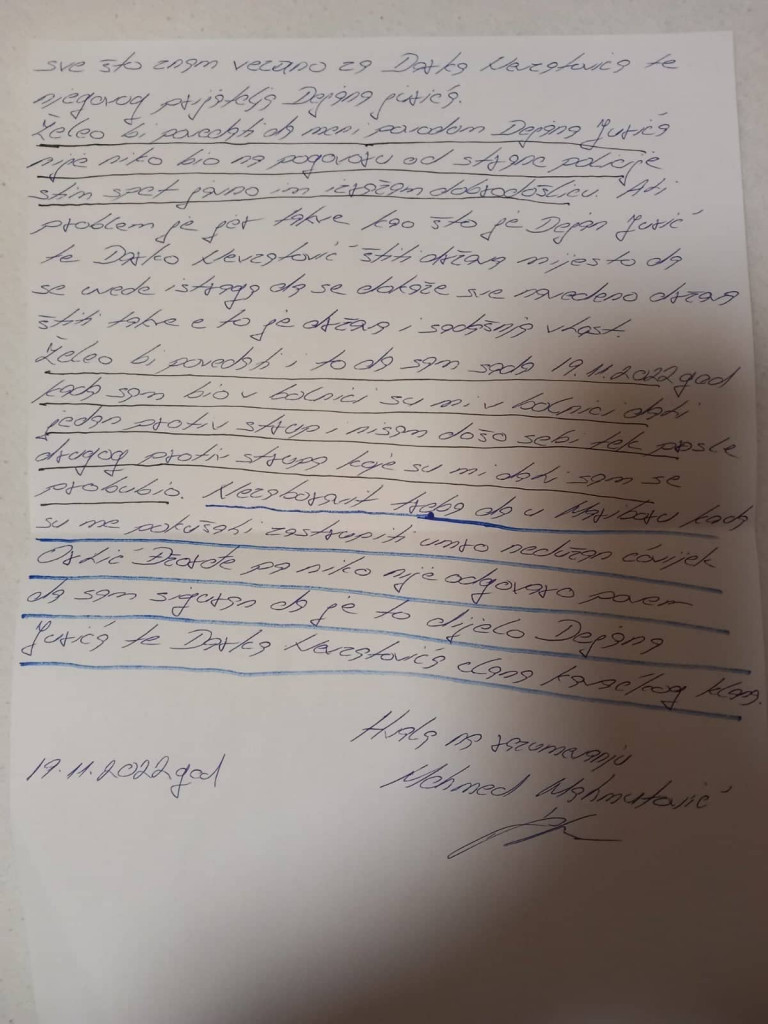 sve što znam vezano za Darka Nevzatovića te
njegovog prijatelja Dejana Jusića.
Želeo bi povedati da meni povodom Dejana Jusića
nije niko bio na pogovoru od strane policije
stim spet javno im izražam dobrodošlicu. Ali
problem je jer takve kao što je Dejan Jusić
te Darko Nevzatović štiti država mijesto da
se uvede istraga da se dokaže sve navedeno država
štiti takve e to je država i sadašnja vlast.
Želeo bi povedati i to da sam sada 19.11.2022 god
kada sam bio u bolnici su mi u bolnici dali
jedan protiv strup i nisam došo sebi tek posle
drugog protiv strupa koje su mi dali sam se
probubio. Nezaboravit treba da u Mariboru kada
su me pokušali zastrupiti umro nedužan čovijek
Oskić Đorđe pa niko nije odgovaro
da sam siguran da je to dijelo Dejana
Jusića te Darka Nevzatovića člana kavačkog klana.
Hvala na razumevanju
19.11.2022 god
Mehmed Mahmutović